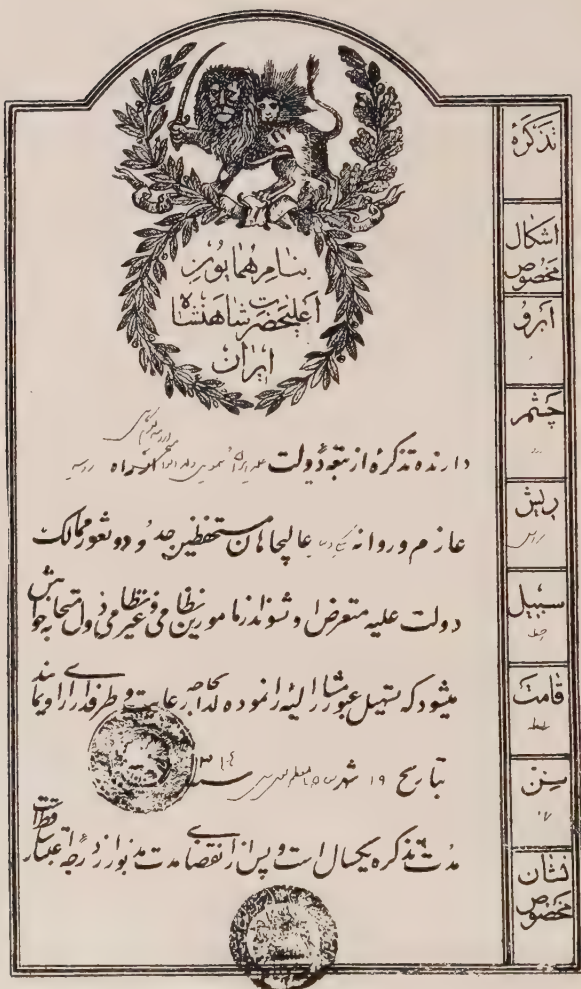 بنام همایون
اعلیحضرت شاهنشاه
ایران
دارنده تذکره از تبعه دولت علیه ایران از راه روسیه
عازم و روانه عالیجاهان مستحفظین حدود و ثغور ممالک
دولت علیه متعرض او نشوند از مامورین نظامی و غیر نظامی دول متحابه خواهش
میشود که تسهیل عبور مشارالیه را نموده لدی الحاجه رعایت و طرفداری از او نمایند
بتاریخ ۱۹ شهر سنه
مدت تذکره یکسال است و پس از انقضای مدت مذبور از درجه اعتبار ساقط است
تذکره
اشکال مخصوص
ابرو
چشم
ریش
سبیل
قامت
سن
نشان مخصوص